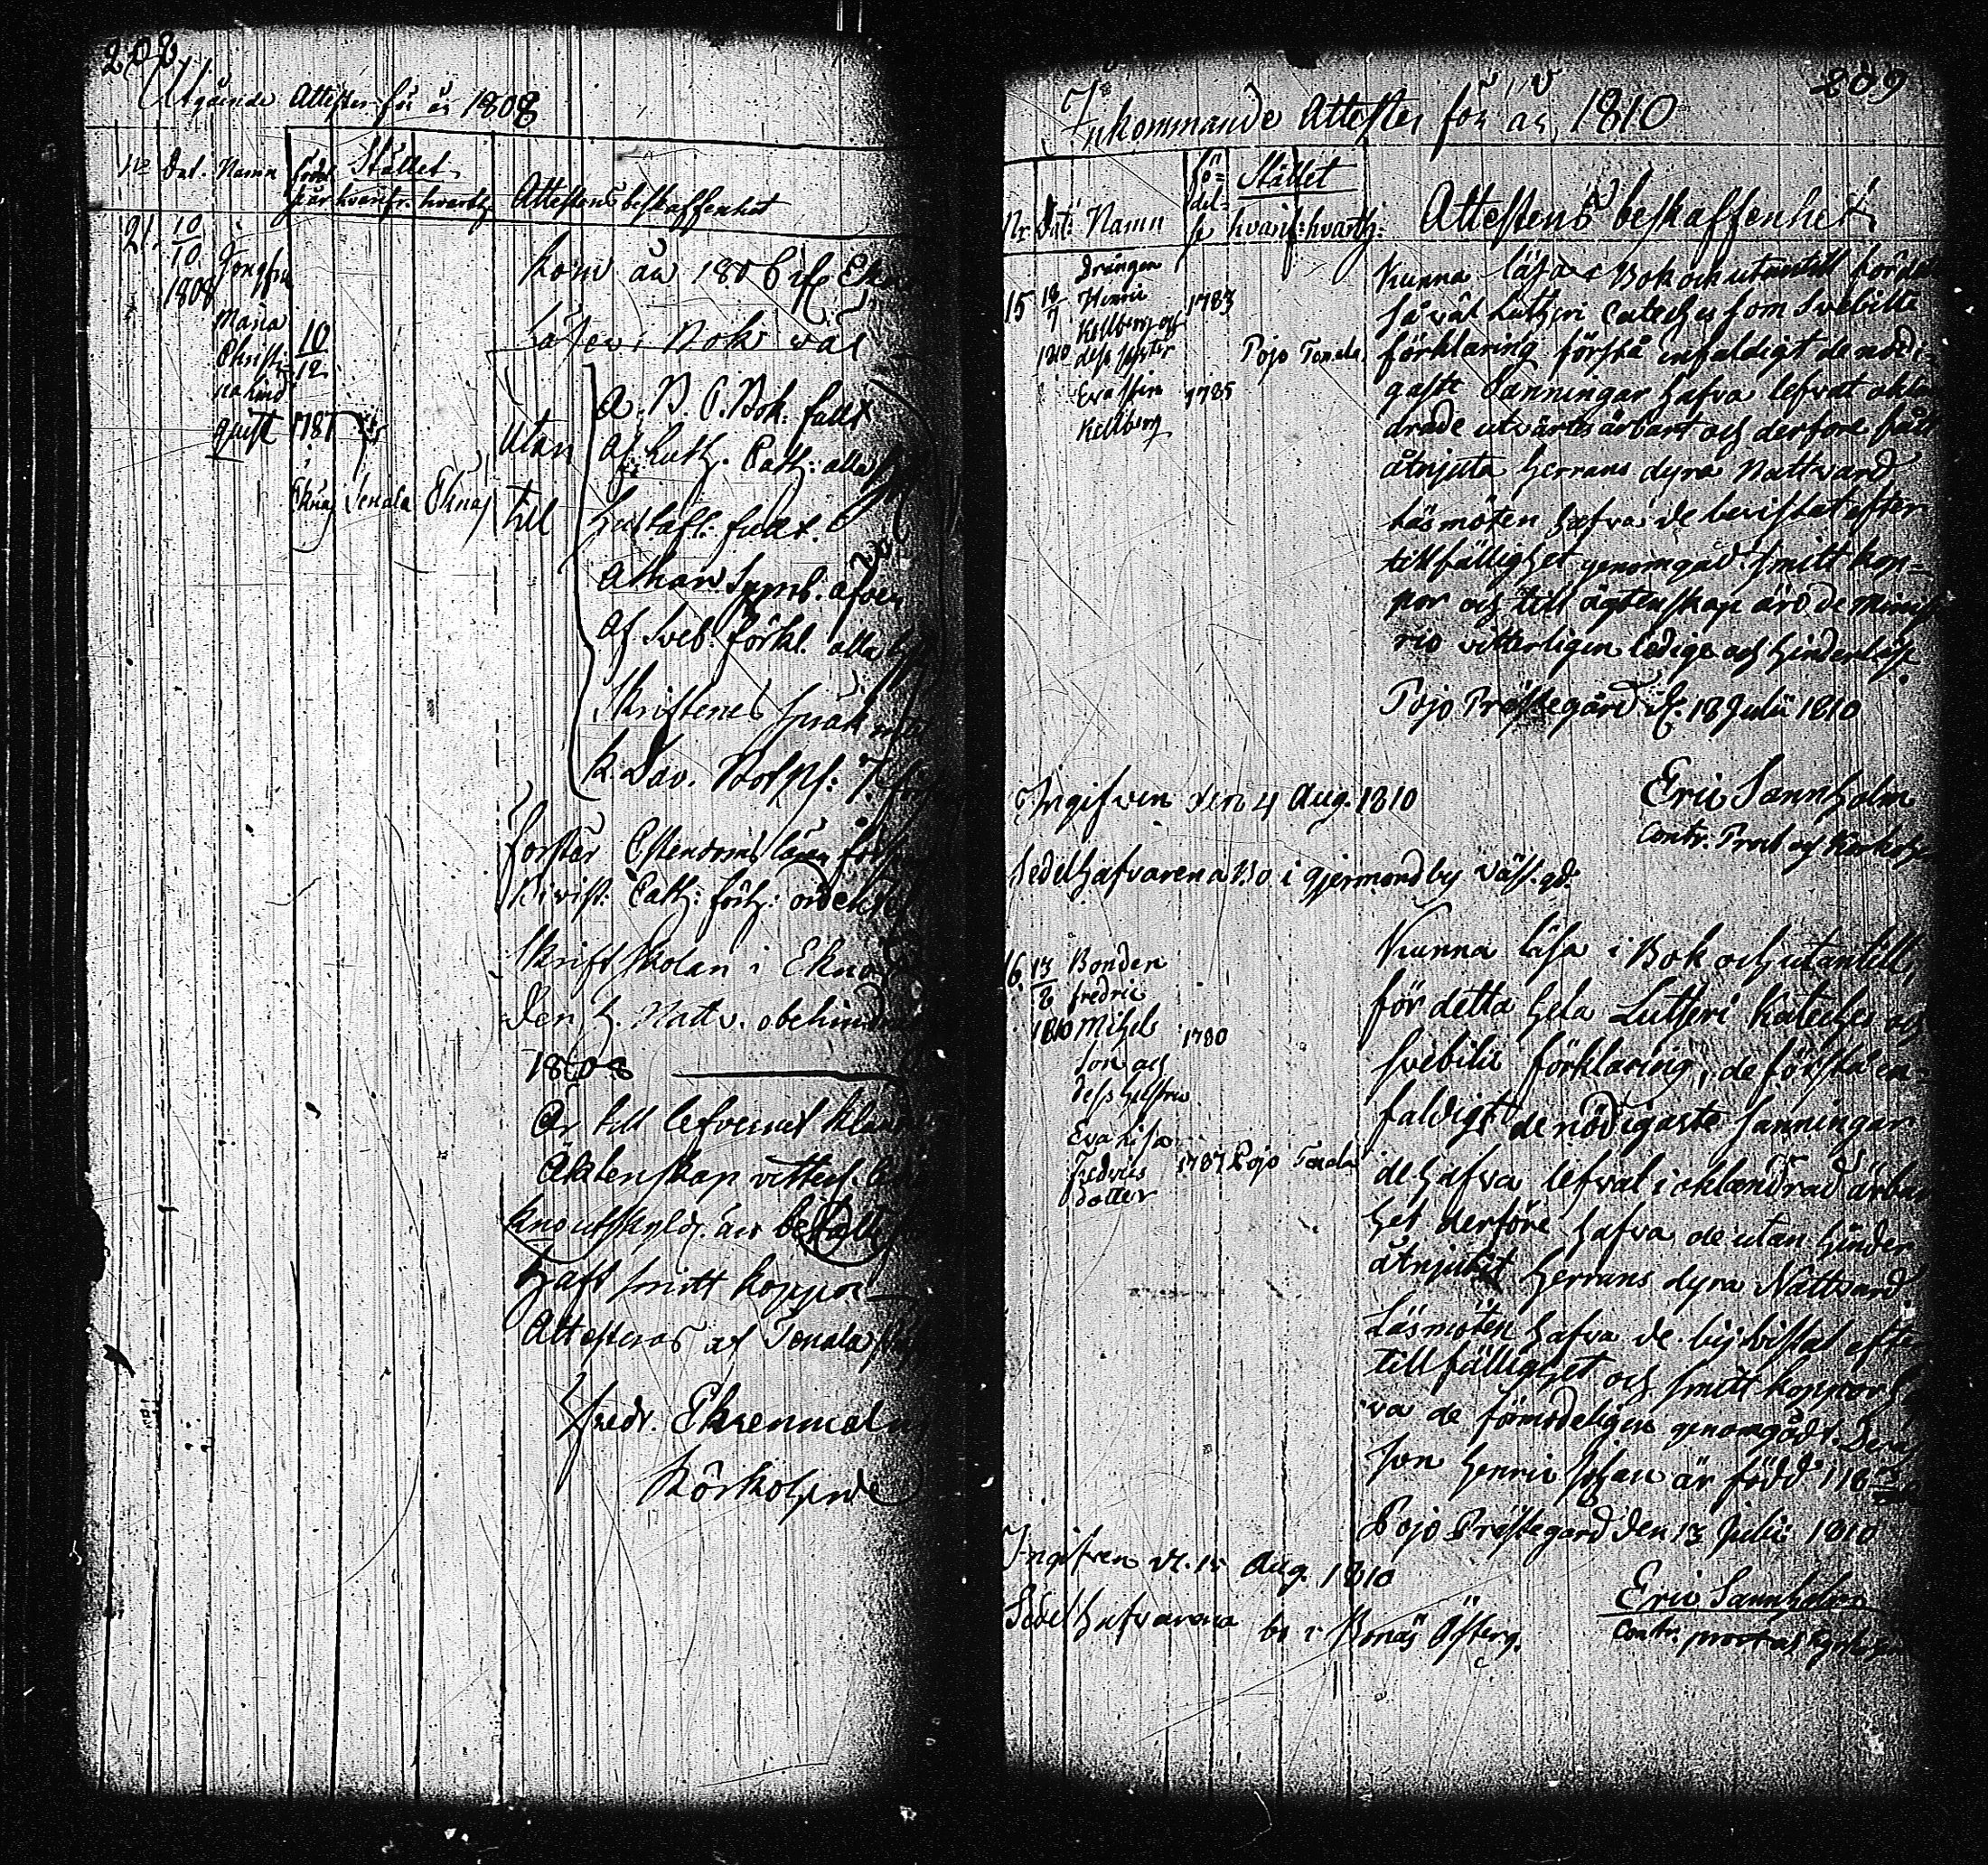 208
Utgående Attester för år 1808
No Dat. Namn född Stället
år hvarifr. hvarth. Attestens beskaffenhet
21. 10/10 1808
Jongfru
Maria
Christi-
na Lind-
quist
10/12
1787
Eknäs Tenala Eknäs
kom år 1806 ifr. Ek
Läser i Bok väl
Utan
till
A. B. C. Bok: fullt
af Luth. Cath: alla
Hustafl: fullt.
Athan. Symb. äfven
af Sveb. förkl. alla
Skriftenes språk
K. Dav. Bot Ps: 7.
väl
förstår
Christ. Cath:
Skriftskolan i Eknäs
Den H. Nattv. obehindr
1808
Är till lefvernet
Äktenskap vitterl.
haft smitt koppor
Attesteras af Tenala
Fredr. Ekrenmalm
Körkoherde
209
Inkommande Attester för år 1810
Nr. Dat: Namn fö-del-se Stället
hvarif: hvarth: Attestens beskaffenhet
15 18/7 1810
Drängen
Henric
Kellberg och
dess syster
Eva Stina
Kellberg
1783
1785
Pojo Tenala
Kunna läsa i Bok och utantill
så väl Lutheri Cateches som Svebilii
förklaring förstå enfaldigt de nödi-
gaste Sanningar hafva lefvat oklan
drade utvärtes ärbart och derföre fått
åtnjuta Herrans dyra Nattvard
Läsmöten hafva de bevistat efter
tillfällighet genomgåd. smitt kop-
por och till ägtenskap äro de
rio vitterligen ledige och hinderlöse.
Pojo Prästegård d. 18 Julii 1810
Eric Sannholm
Contr. Prost och Kyrkoh
Ingifven den 4 Aug. 1810
Sedelhafvarena Bo i Gjermundby Väst. gd.
16. 13/8 1810
Bonden
Fredric
Mihels
Son och
dess hustru
Eva Lisa
Fredrics
dotter
1780
1787 Pojo Tenala
Kunna läsa i Bok och utantill,
för detta hela Lutheri Kateches och
Svebilii förklaring, de förstå en-
faldigt de nödigaste sanningar
de hafva lefvat i oklandrad ärbar
het derföre hafva de utan hinder
åtnjutit Herrans dyra Nattvard
Läsmöten hafva de bijvistat efter
tillfällighet och smitt koppor
va de förmodeligen genomgådt. Dera
Son Henric Johan är född
Pojo Prästegård den 13 Julii 1810
Eric Sannholm
Contr. prost och kyrkoh
Ingifven d. 15 Aug. 1810
Sedelhafvarena bo i Bonäs Österg.